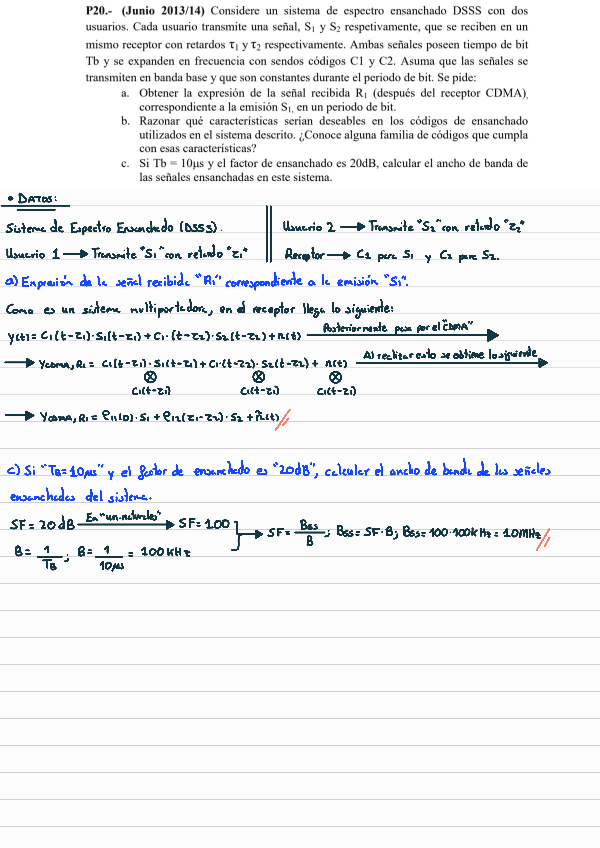 P20.- (Junio 2013/14) Considere un sistema de espectro ensanchado DSSS con dos
usuarios. Cada usuario transmite una señal, S₁ y S₂ respetivamente, que se reciben en un
mismo receptor con retardos τ₁ y τ₂ respectivamente. Ambas señales poseen tiempo de bit
Tb y se expanden en frecuencia con sendos códigos C1 y C2. Asuma que las señales se
transmiten en banda base y que son constantes durante el periodo de bit. Se pide:
a. Obtener la expresión de la señal recibida R₁ (después del receptor CDMA),
correspondiente a la emisión S₁, en un periodo de bit.
b. Razonar qué características serían deseables en los códigos de ensanchado
utilizados en el sistema descrito. ¿Conoce alguna familia de códigos que cumpla
con esas características?
c. Si Tb = 10μs y el factor de ensanchado es 20dB, calcular el ancho de banda de
las señales ensanchadas en este sistema.
• DATOS:
Sistema de Espectro Ensanchado (DSSS).
Usuario 1 → Transmite "S₁" con retardo "τ₁"
Usuario 2 → Transmite "S₂" con retardo "τ₂"
Receptor → C₁ para S₁ y C₂ para S₂.
a) Expresión de la señal recibida "R₁" correspondiente a la emisión "S₁".
Como es un sistema multiportadora, en el receptor llega lo siguiente:
y(t) = C₁(t-τ₁)·S₁(t-τ₁) + C₁·(t-τ₂)·S₂(t-τ₂) + n(t) Posteriormente pasa por el "CDMA" →
→ Y_CDMA,R₁ = C₁(t-τ₁)·S₁(t-τ₁) + C₁(t-τ₂)·S₂(t-τ₂) + n(t) Al realizar esto se obtiene lo siguiente →
⊗ ⊗ ⊗
C₁(t-τ₁) C₁(t-τ₁) C₁(t-τ₁)
→ Y_CDMA,R₁ = ρ₁₁(0)·S₁ + ρ₁₂(τ₁-τ₂)·S₂ + ñ(t) //
c) Si "TB=10μs" y el factor de ensanchado es "20dB", calcular el ancho de banda de las señales
ensanchadas del sistema.
SF = 20dB En "un.naturales" → SF = 100
B = 1/TB ; B = 1/10μs = 100 KHz
→ SF = Bss/B ; Bss = SF·B ; Bss = 100·100kHz = 10MHz //